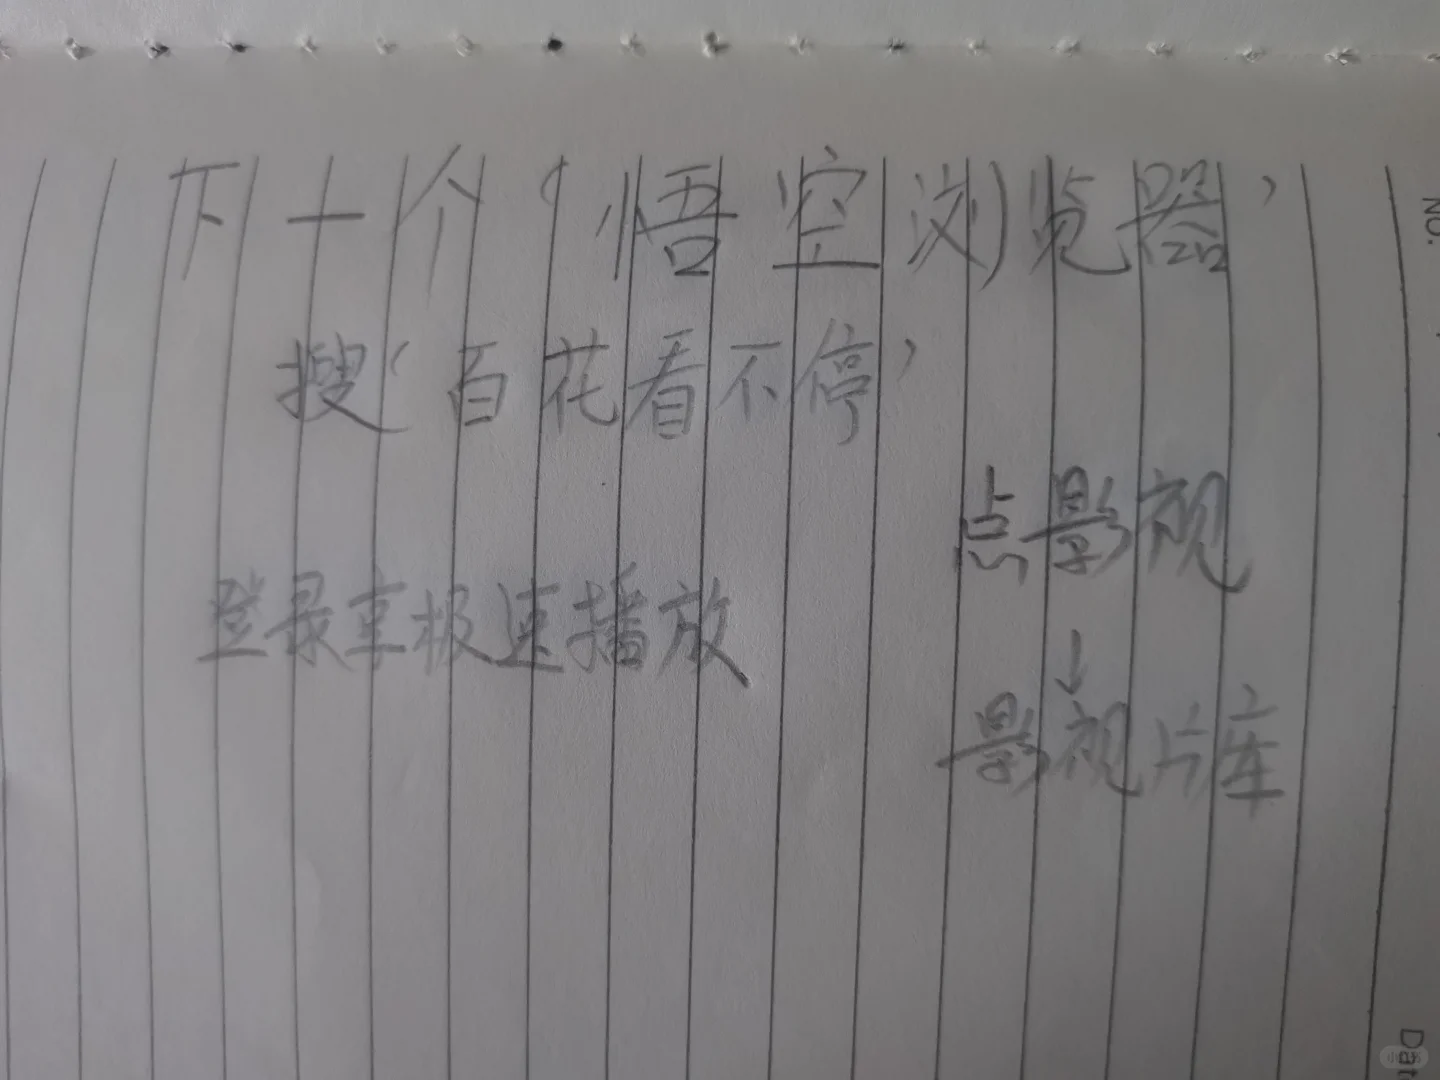 下一个‘悟空浏览器’
搜‘百花看不停’
点影视
↓
影视片库
登录享极速播放
No.
Dat